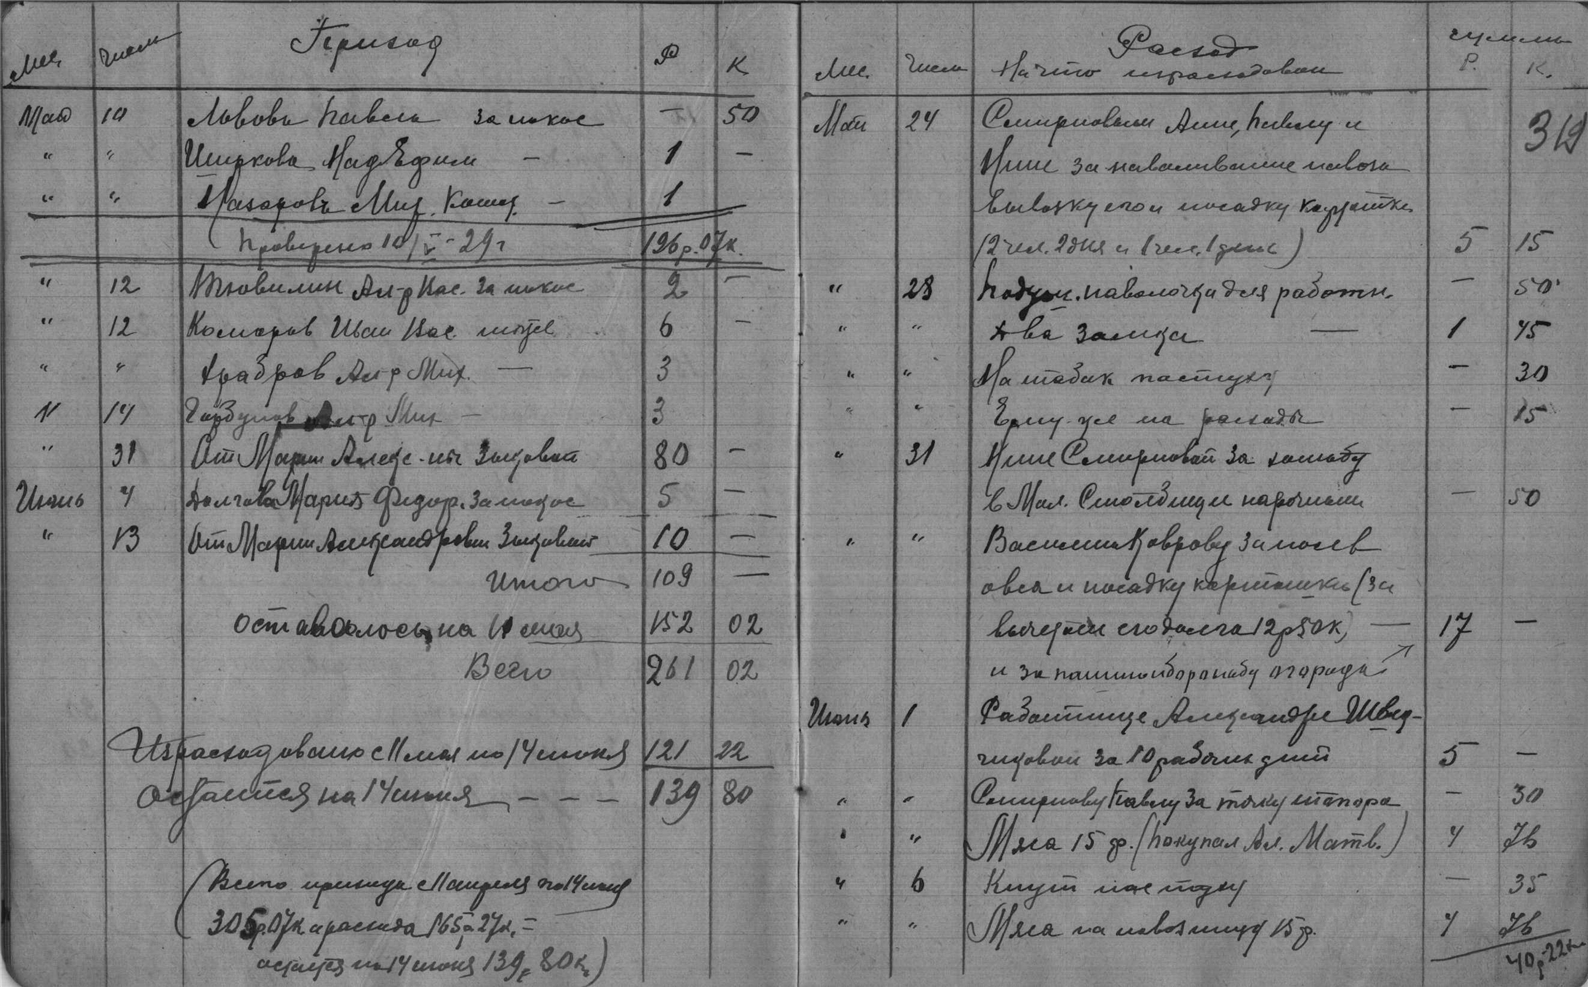 Мес. Числ Приход Р К
Май 10 Львовы Павел за покос — 50
" " Ширкова Над Ефим — 1 —
" " Назаровъ Мих. — 1
Проверено 10/V-29 г 196 р. 07 к.
" 12 Алр Вас. за покос 2 —
" 12 Комаров Иван Вас тоже 6 —
" " Храбров Алр Мих. — 3
11 14 Горбунов Алр Мих — 3
" 31 От Марии Алекс-ны 80 —
Июнь 4 Долгова Мария Федор. за покос 5 —
" 13 От Марии Александровны 10 —
Итого 109 —
Оставалось на 11 мая 152 02
Всего 261 02
Израсходовано с 11 мая по 14 июня 121 22
Остается на 14 июня — — — 139 80
(Всего прихода с 11 апреля по 14 июня
305 р. 07 к а расхода 165 р 27 к. =
остается на 14 июня 139 р 80 к.)
Расход сумма
Мес. Число На что израсходован Р. К.
Май 24 Смирновым Анне, Павлу и 319
Нине за наваливание навоза
вывозку его и посадку картошки
(2 чел. 2 дня и 1 чел. 1 день) 5 15
" 28 наволочка для работн. — 50
" " Два замка — 1 45
" " На табак пастуху — 30
" " Ему же на расходы — 15
" 31 Нине Смирновой за ходьбу
в Мал. Столбищи нарочным — 50
" " Василию Коврову за посев
овса и посадку картошки (за
вычетом его долга 12 р 50 к) — 17 —
и за пашню и бороньбу огорода
Июня 1 Работнице Александре
за 10 рабочих дней 5 —
" " Смирнову Павлу за точку топора — 30
" " Мяса 15 ф. (покупал Ал. Матв.) 4 76
" 6 Кнут пастуху — 35
" " Мяса на навозницу 15 ф. 4 76
40 р. 22 к